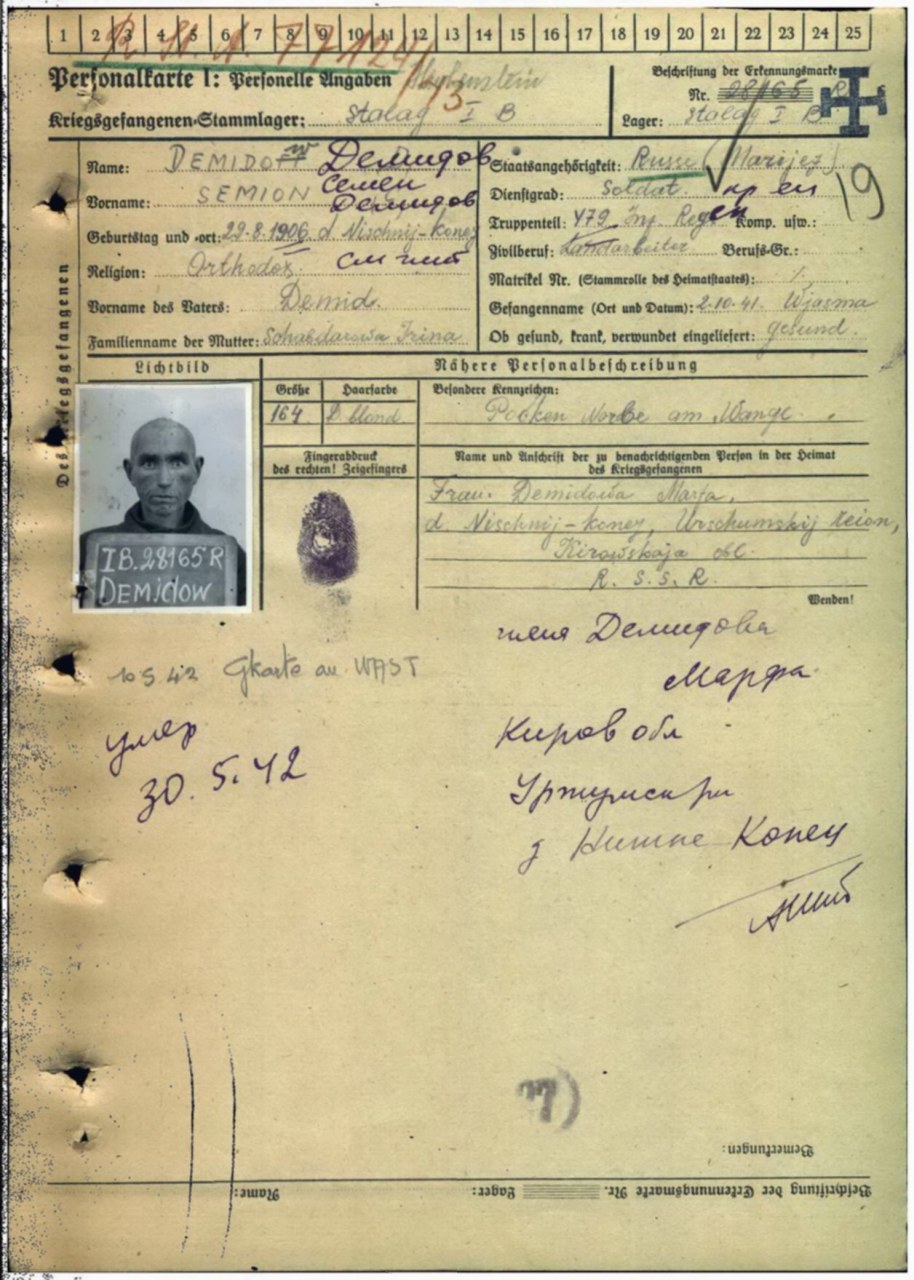 1 2 3 4 5 6 7 8 9 10 11 12 13 14 15 16 17 18 19 20 21 22 23 24 25
Personalkarte I: Personelle Angaben
Kriegsgefangenen-Stammlager: Stalag I B
Beschriftung der Erkennungsmarke
Nr. 28165 R
Lager: Stalag I B
Des Kriegsgefangenen
Name: DEMIDOFF w Демидов
Vorname: SEMION Семен Демидов
Geburtstag und -ort: 29.8.1906 d. Nischnij-Konez
Religion: Orthodox.
Vorname des Vaters: Demid.
Familienname der Mutter: Irina
Staatsangehörigkeit: Russe (Marijez)
Dienstgrad: Soldat.
Truppenteil: 479 Inf. Reg. Komp. usw.:
Zivilberuf: Landarbeiter Berufs-Gr.:
Matrikel Nr. (Stammrolle des Heimatstaates): /
Gefangennahme (Ort und Datum): 2.10.41. Wjasma
Ob gesund, krank, verwundet eingeliefert: gesund.
19
Lichtbild
Nähere Personalbeschreibung
Größe
164
Haarfarbe
D. blond
Besondere Kennzeichen:
Pocken Narbe am Wange.
Fingerabdruck
des rechten! Zeigefingers
Name und Anschrift der zu benachrichtigenden Person in der Heimat
des Kriegsgefangenen
Frau: Demidowa Marfa,
d. Nischnij-Konez, Urschumskij Reion,
Kirowskaja obl.
R. S. S. R.
Wenden!
IB.28165R
DEMIDOW
10 5 42 Gkarte an WASt
умер
30. 5. 42
жена Демидова
Марфа
Киров обл
Уржумск рн
д Нижне Конец
Bemerkungen:
Beschriftung der Erkennungsmarke Nr. Lager: Name: